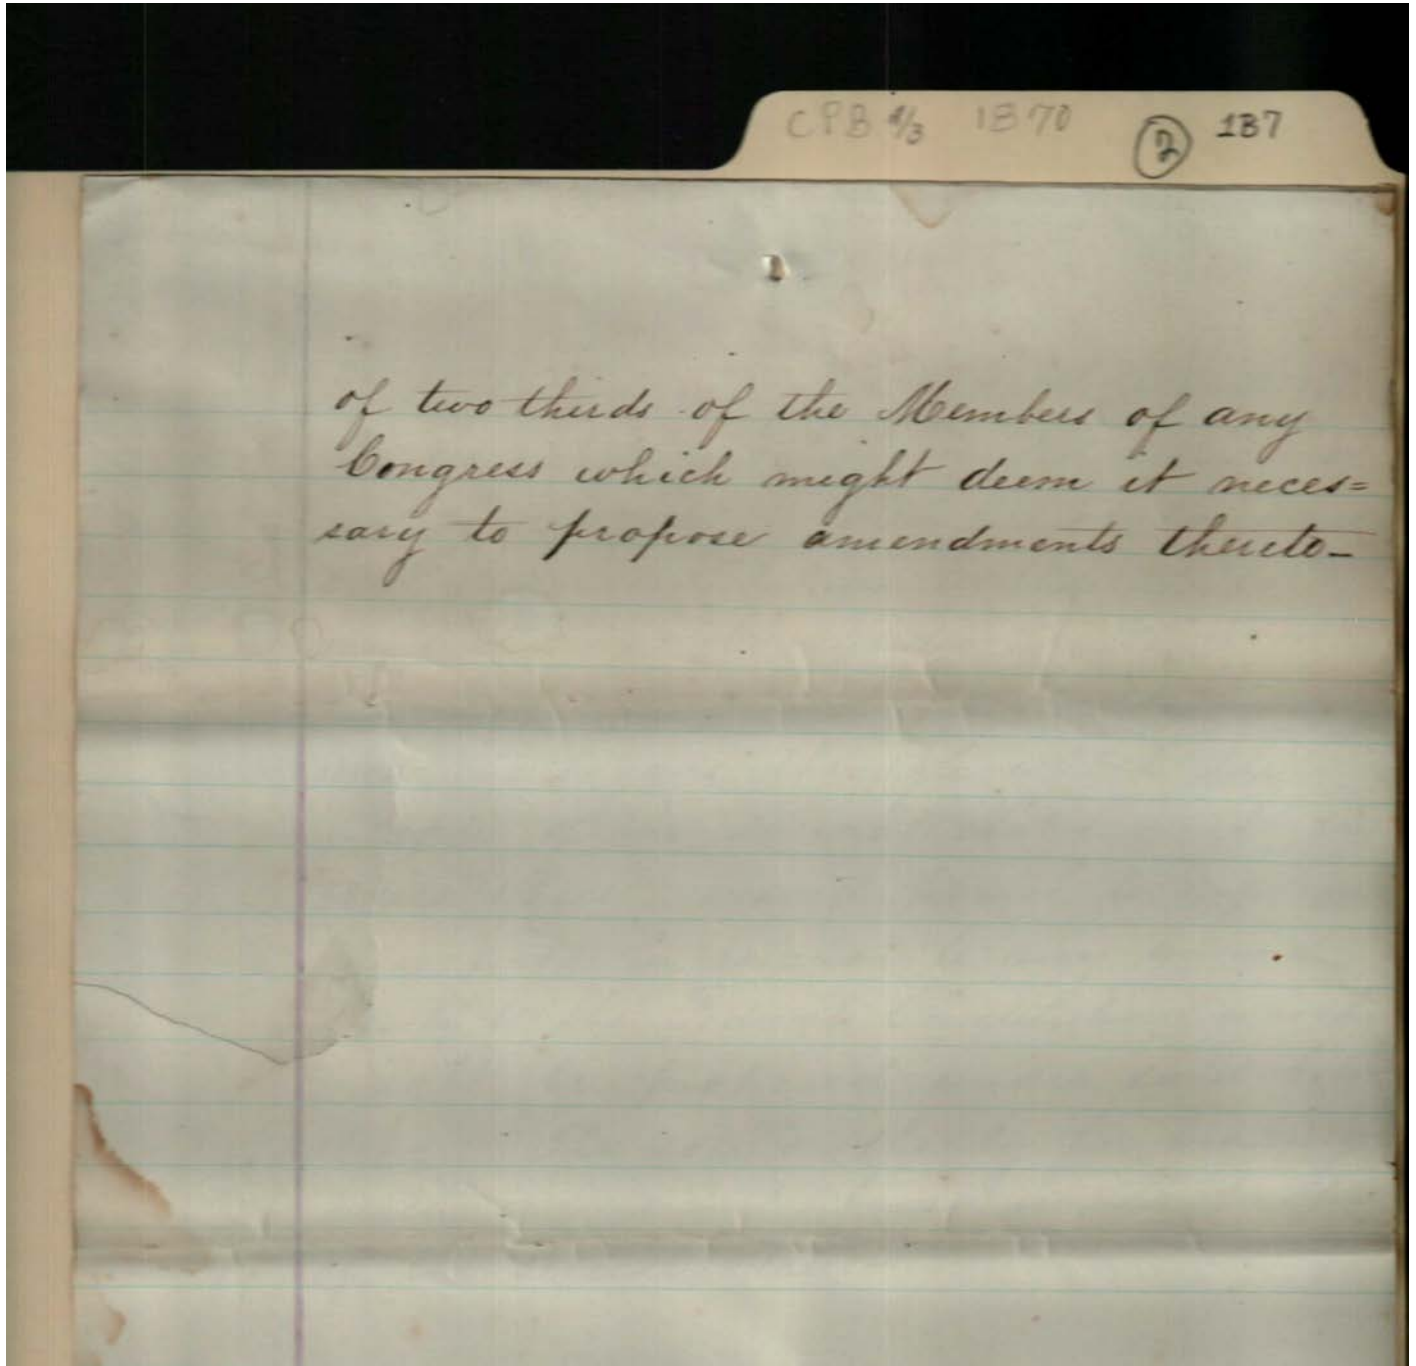 CPB 4/3 1870 2 187
of two thirds of the Members of any
Congress which might deem it neces=
sary to propose amendments thereto-